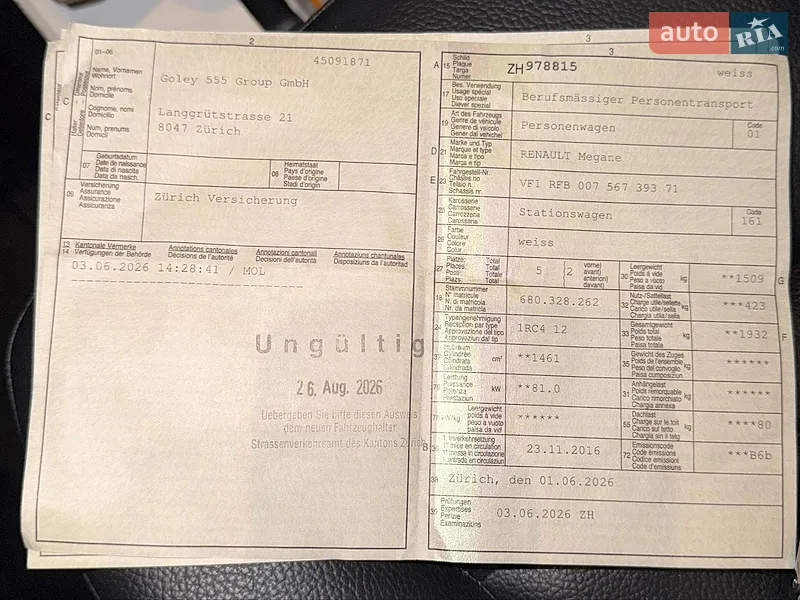 auto RIA .com
2
3
3
01-06
45091871
C
Name, Vornamen
Wohnort
Nom, prénoms
Domicile
Cognome, nomi
Domicilio
Num, prenums
Domicil
Goley 555 Group GmbH
Langgrütstrasse 21
8047 Zürich
07
Geburtsdatum
Date de naissance
Data di nascita
Data da nasch.
08
Heimatstaat
Pays d'origine
Paese d'origine
Stadi d'origin
09
Versicherung
Assurance
Assicurazione
Assicuranza
Zürich Versicherung
13
14
Kantonale Vermerke
Verfügungen der Behörde
Annotations cantonales
Décisions de l'autorité
Annotazioni cantonali
Decisioni dell'autorità
Annotaziuns chantunalas
Disposiziuns da l'autoritad
03.06.2026 14:28:41 / MOL
Ungültig
26. Aug. 2026
Uebergeben Sie bitte diesen Ausweis
dem neuen Fahrzeughalter
Strassenverkehrsamt des Kantons Zürich
A 15
Schild
Plaque
Targa
Numer
ZH 978815
weiss
17
Bes. Verwendung
Usage spécial
Uso speciale
Diever spezial
Berufsmässiger Personentransport
19
Art des Fahrzeugs
Genre de véhicule
Genere di veicolo
Gener dal vehichel
Personenwagen
Code
01
D 21
Marke und Typ
Marque et type
Marca e tipo
Marca e tip
RENAULT Megane
E 23
Fahrgestell-Nr.
Châssis no
Telaio n.
Schassis nr.
VF1 RFB 007 567 393 71
25
Karosserie
Carrosserie
Carrozzeria
Carossaria
Stationswagen
Code
161
26
Farbe
Couleur
Colore
Colur
weiss
27
Plätze: Total
Places: Total
Posti: Totale
Plazs: Total
5
(2
vorne)
avant)
anteriori)
davant)
30
Leergewicht
Poids à vide
Peso a vuoto
Paisa da vid
kg
**1509
G
18
Stammnummer
N° matricule
N. di matricola
Nr. da matricla
680.328.262
32
Nutz-/Sattellast
Charge utile/sellette
Carico utile/sella
Chargia utila/sella
kg
***423
24
Typengenehmigung
Réception par type
Approvazione del tipo
Approvaziun dal tip
1RC4 12
33
Gesamtgewicht
Poids total
Peso totale
Paisa totala
kg
**1932
F
37
Hubraum
Cylindrée
Cilindrata
Cilindrada
cm³
**1461
35
Gewicht des Zuges
Poids de l'ensemble
Peso del convoglio
Paisa cumposiziun
kg
******
76
Leistung
Puissance
Potenza
Prestaziun
kW
**81.0
31
Anhängelast
Poids remorquable
Peso rimorchiato
Chargia annexa
kg
******
78 kW/kg
Leergewicht
poids à vide
peso a vuoto
paisa da vid
******
55
Dachlast
Charge sur le toit
Carico sul tetto
Chargia sin il tetg
kg
****80
B 36
1. Inverkehrsetzung
1re mise en circulation
1. messa in circolazione
1. entrada en circulaziun
23.11.2016
72
Emissionscode
Code émissions
Codice emissioni
Code d'emissiuns
***B6b
38
Zürich, den 01.06.2026
39
Prüfungen
Expertises
Perizie
Examinaziuns
03.06.2026 ZH